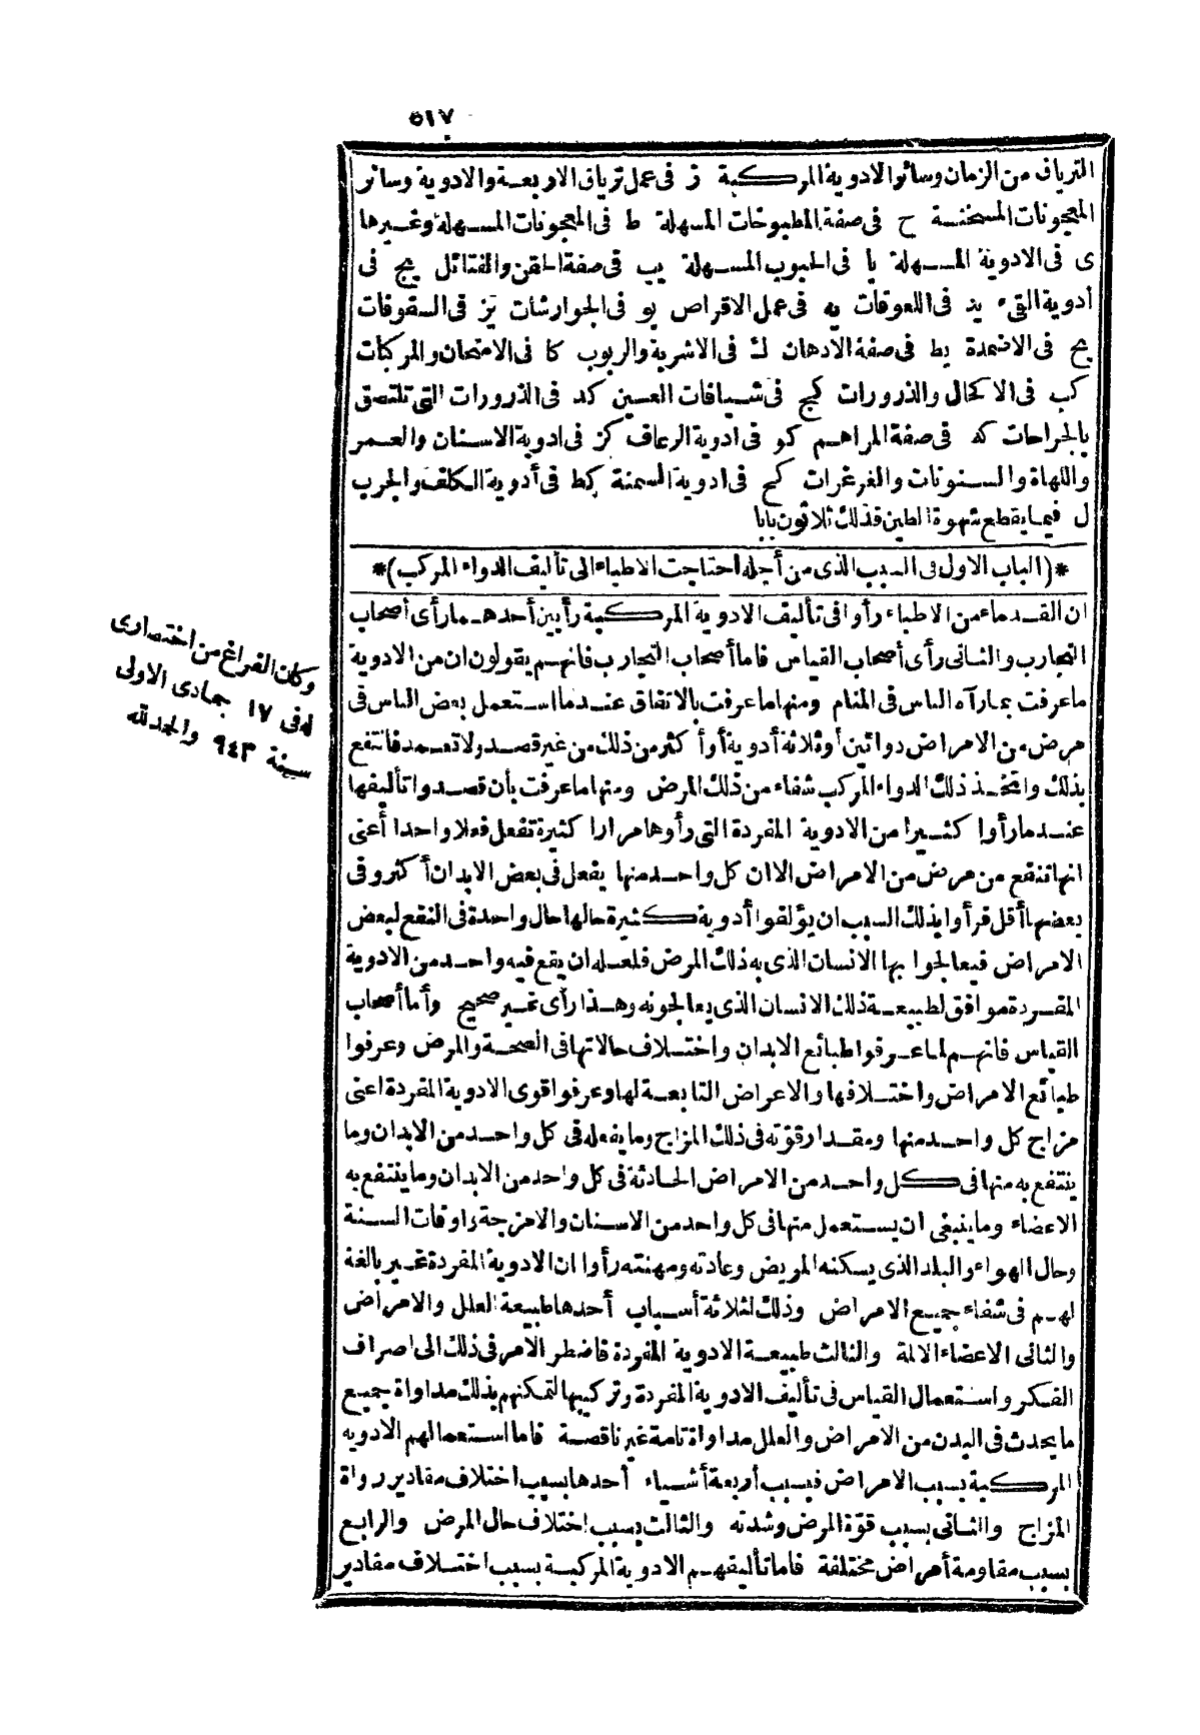 ٥١٧
الترياق من الزمان وسائر الادوية المركبة ز فى عمل ترياق الاربعة والادوية وسائر
المعجونات المسخنة ح فى صفة المطبوخات المسهلة ط فى المعجونات المسهلة وغيرها
ى فى الادوية المسهلة يا فى الحبوب المسهلة يب فى صفة الحقن والفتائل يج فى
أدوية القىء يد فى اللعوقات يه فى عمل الاقراص يو فى الجوارشات يز فى السفوفات
يح فى الاضمدة يط فى صفة الادهان ك فى الاشربة والربوب كا فى الامتحان والمركبات
كب فى الاكحال والذرورات كج فى شيافات العين كد فى الذرورات التى تلتصق
بالجراحات كه فى صفة المراهم كو فى ادوية الرعاف كز فى ادوية الاسنان والعمر
واللهاة والسنونات والغرغرات كح فى ادوية السمنة كط فى أدوية الكلف والجرب
ل فيما يقطع شهوة الطين فذلك ثلاثون بابا
*(الباب الاول فى السبب الذى من أجله احتاجت الاطباء الى تأليف الدواء المركب)*
ان القدماء من الاطباء رأوا فى تأليف الادوية المركبة رأيين أحدهما رأى أصحاب
التجارب والثانى رأى أصحاب القياس فاما أصحاب التجارب فانهم يقولون ان من الادوية
ما عرفت بما رآه الناس فى المنام ومنها ما عرفت بالاتفاق عندما استعمل بعض الناس فى
مرض من الامراض دوائين أو ثلاثة أدوية أو أكثر من ذلك من غير قصد ولا تعمد فانتفع
بذلك واتخذ ذلك الدواء المركب شفاء من ذلك المرض ومنها ما عرفت بأن قصدوا تأليفها
عندما رأوا كثيرا من الادوية المفردة التى رأوها مرارا كثيرة تفعل فعلا واحدا أعنى
انها تنفع من مرض من الامراض الا ان كل واحد منها يفعل فى بعض الابدان أكثر وفى
بعضها أقل فرأوا بذلك السبب ان يؤلفوا أدوية كثيرة حالها حال واحدة فى النفع لبعض
الامراض فيعالجوا بها الانسان الذى به ذلك المرض فلعله ان يقع فيه واحد من الادوية
المفردة موافق لطبيعة ذلك الانسان الذى يعالجونه وهذا رأى غير صحيح وأما أصحاب
القياس فانهم لما عرفوا طبائع الابدان واختلاف حالاتها فى الصحة والمرض وعرفوا
طبائع الامراض واختلافها والاعراض التابعة لها وعرفوا قوى الادوية المفردة اعنى
مزاج كل واحد منها ومقدار قوّته فى ذلك المزاج وما يفعله فى كل واحد من الابدان وما
ينتفع به منها فى كل واحد من الامراض الحادثة فى كل واحد من الابدان وما ينتفع به
الاعضاء وما ينبغى ان يستعمل منها فى كل واحد من الاسنان والامزجة واوقات السنة
وحال الهواء والبلد الذى يسكنه المريض وعادته ومهنته رأوا ان الادوية المفردة غير بالغة
لهم فى شفاء جميع الامراض وذلك لثلاثة أسباب أحدها طبيعة العلل والامراض
والثانى الاعضاء الالمة والثالث طبيعة الادوية المفردة فاضطر الامر فى ذلك الى اصراف
الفكر واستعمال القياس فى تأليف الادوية المفردة وتركيبها لتمكنهم بذلك مداواة جميع
ما يحدث فى البدن من الامراض والعلل مداواة تامة غير ناقصة فاما استعمالهم الادوية
المركبة بسبب الامراض فبسبب أربعة أشياء أحدها بسبب اختلاف مقادير رواة
المزاج والثانى بسبب قوّة المرض وشدته والثالث بسبب اختلاف حال المرض والرابع
بسبب مقاومة أمراض مختلفة فاما تأليفهم الادوية المركبة بسبب اختلاف مقادير
وكان الفراغ من اختصارى
له فى ١٧ جمادى الاولى
سنة ٩٤٣ والحمد لله